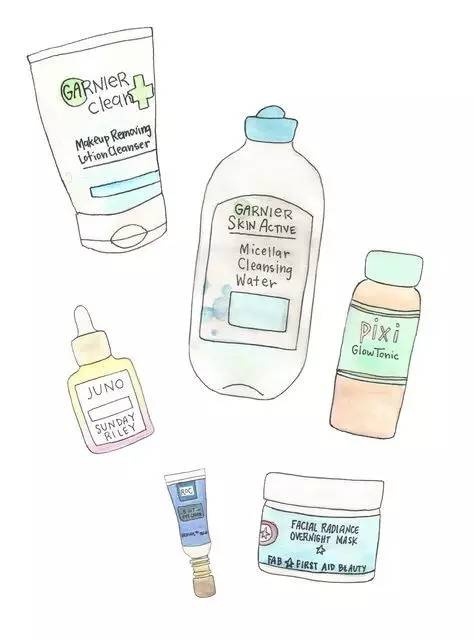 GARNIER
clean
Makeup Removing
Lotion Cleanser
GARNIER
SKIN ACTIVE
Micellar
Cleansing
Water
pixi
Glow Tonic
JUNO
SUNDAY
RILEY
ROC
FACIAL RADIANCE
OVERNIGHT MASK
FAB FIRST AID BEAUTY